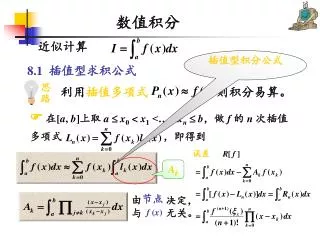 数值积分
近似计算 $I = \int_a^b f(x)dx$
插值型积分公式
8.1 插值型求积公式
思路
利用插值多项式 $P_n(x) \approx f$ 则积分易算。
☞ 在[a, b]上取 $a \le x_0 < x_1 < \dots x_n \le b$，做 f 的 n 次插值
多项式 $L_n(x) = \sum_{k=0}^{n} f(x_k) l_k(x)$，即得到
$\int_a^b f(x)dx \approx \sum_{k=0}^{n} f(x_k) \int_a^b l_k(x)dx$
$A_k$
$A_k = \int_a^b \prod_{j \ne k} \frac{(x - x_j)}{(x_k - x_j)} dx$
由节点决定，
与 f(x) 无关。
误差 R[f]
$= \int_a^b f(x)dx - \sum_{k=0}^{n} A_k f(x_k)$
$= \int_a^b [f(x) - L_n(x)]dx = \int_a^b R_n(x)dx$
$= \int_a^b \frac{f^{(n+1)}(\xi_x)}{(n+1)!} \prod_{k=0}^{n} (x - x_k) dx$